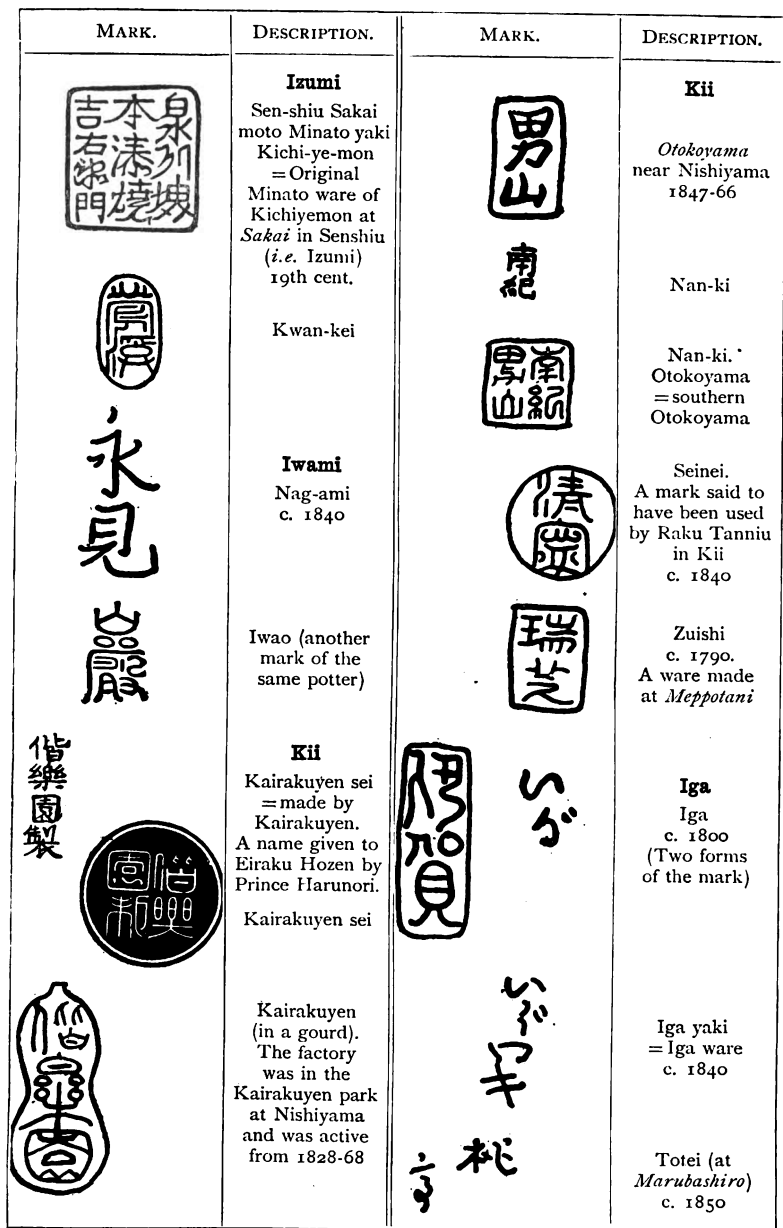 MARK.
DESCRIPTION.
泉州堺
本湊焼
吉右衛門
Izumi
Sen-shiu Sakai
moto Minato yaki
Kichi-ye-mon
=Original
Minato ware of
Kichiyemon at
Sakai in Senshiu
(i.e. Izumi)
19th cent.
Kwan-kei
永見
Iwami
Nag-ami
c. 1840
巖
Iwao (another
mark of the
same potter)
偕樂園製
Kii
Kairakuyen sei
=made by
Kairakuyen.
A name given to
Eiraku Hozen by
Prince Harunori.
偕樂
園制
Kairakuyen sei
偕樂園
Kairakuyen
(in a gourd).
The factory
was in the
Kairakuyen park
at Nishiyama
and was active
from 1828-68
MARK.
DESCRIPTION.
Kii
男山
Otokoyama
near Nishiyama
1847-66
南紀
Nan-ki
南紀
男山
Nan-ki.
Otokoyama
=southern
Otokoyama
清寧
Seinei.
A mark said to
have been used
by Raku Tanniu
in Kii
c. 1840
瑞芝
Zuishi
c. 1790.
A ware made
at Meppotani
伊賀
いが
Iga
Iga
c. 1800
(Two forms
of the mark)
いが
ヤキ
Iga yaki
=Iga ware
c. 1840
桃
亭
Totei (at
Marubashiro)
c. 1850